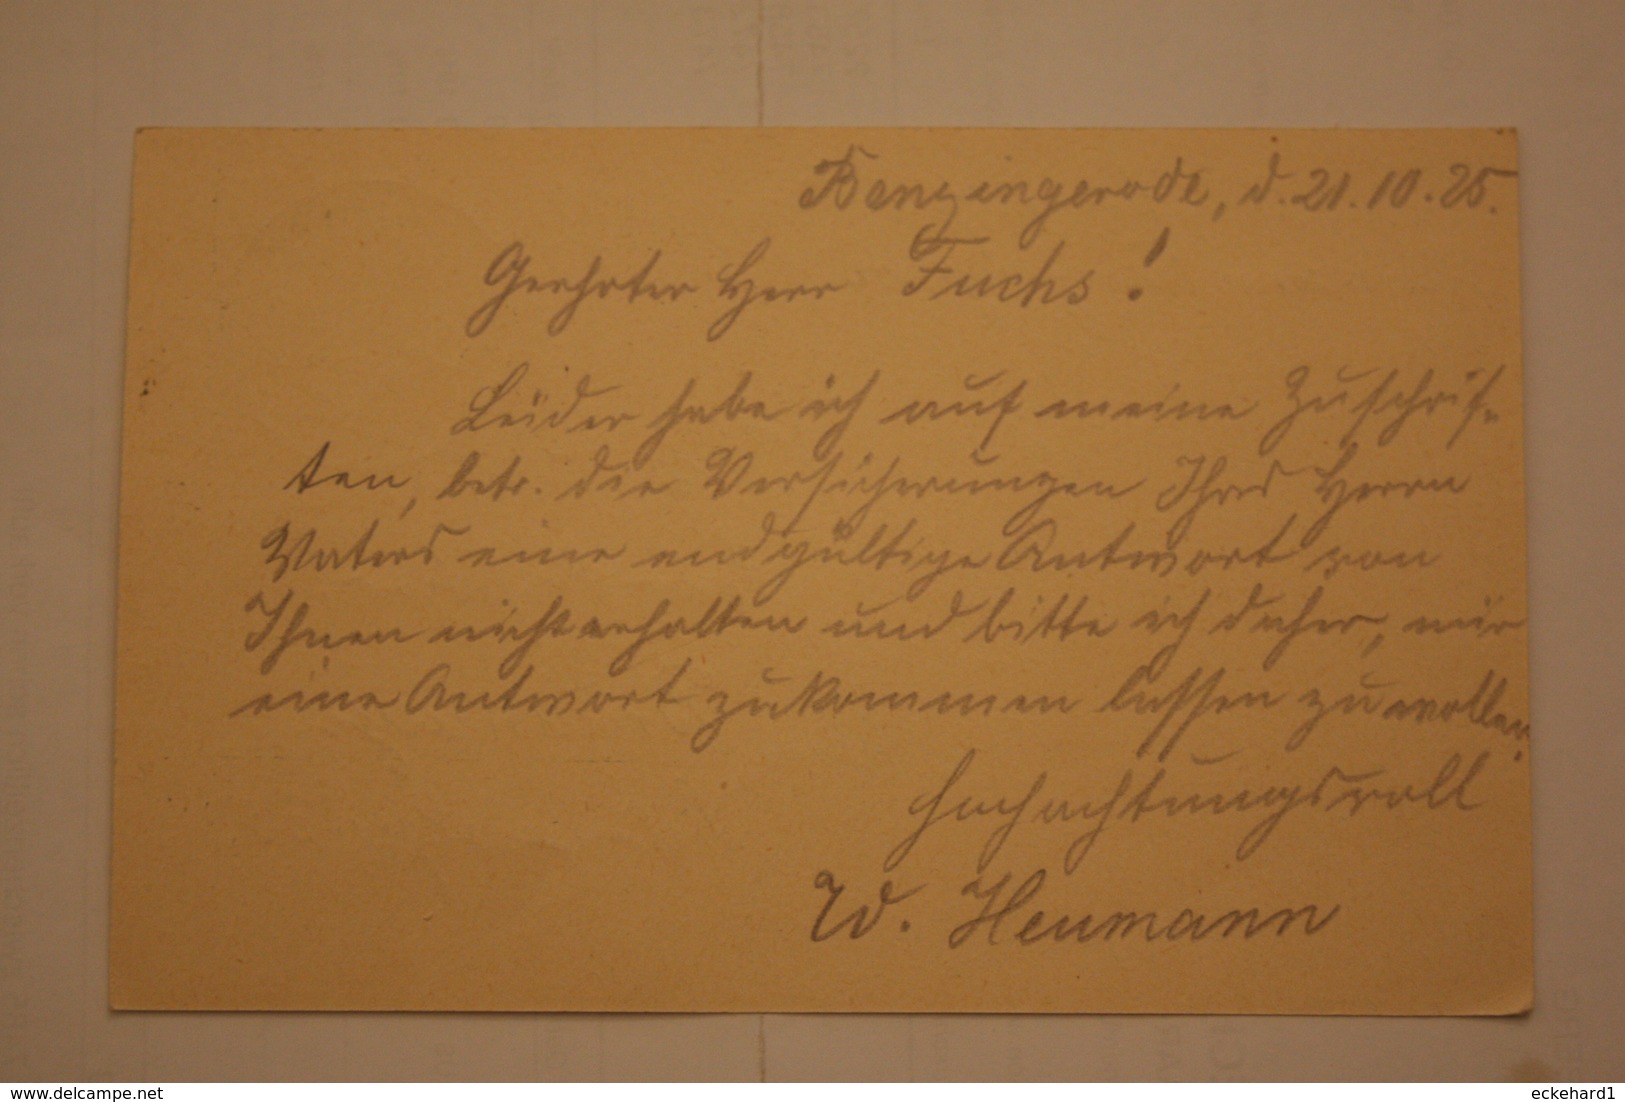 Benzingerode, d. 21.10.25.
Geehrter Herr Fuchs!
Leider habe ich auf meine Zuschrif-
ten, betr. die Versicherungen Ihres Herrn
Vaters eine endgültige Antwort von
Ihnen nicht erhalten und bitte ich daher, mir
eine Antwort zukommen lassen zu wollen.
Hochachtungsvoll
W. Heumann
www.delcampe.net
eckehard1